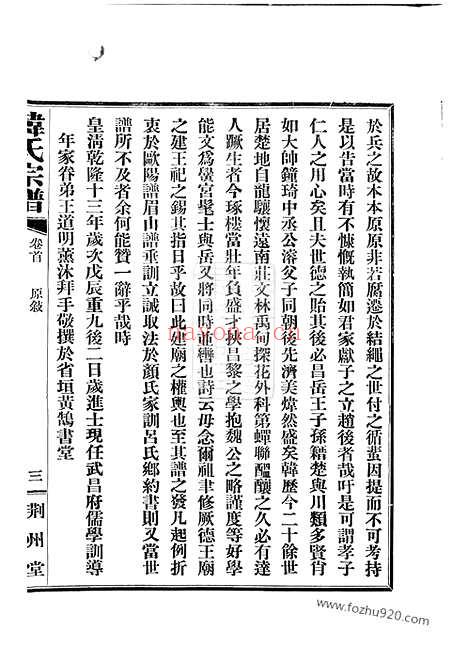 於兵之故本本原原非若腐遷於結繩之世付之循蜚因提而不可考持
是以告當時有不慷慨執簡如君家獻子之立趙後者哉吁是可謂孝子
仁人之用心矣且夫世德之貽其後必昌岳王子孫籍楚與川類多賢肖
如大帥鍾琦中丞公濬父子同朝後先濟美煒然盛矣韓歷今二十餘世
居楚地自龍驤懷遠南莊文林禹甸探花外科第蟬聯醞釀之久必有達
人蹶生者今琢樓當壯年負盛才挾昌黎之學抱魏公之略謹度等好學
能文爲黌宮髦士與岳又將同時並轡也詩云毋念爾祖聿修厥德王廟
之建王祀之錫其指日乎故曰此修廟之權輿也至其譜之發凡起例折
衷於歐陽譜眉山譜垂訓立誡取法於顏氏家訓呂氏鄉約書則又當世
譜所不及者余何能贊一辭乎哉時
皇清乾隆十三年歲次戊辰重九後二日歲進士現任武昌府儒學訓導
年家眷弟王道明薰沐拜手敬撰於省垣黃鵠書堂
韓氏宗譜
卷首 原敘
三
荆州堂
nayona.cn
www.fozhu920.com